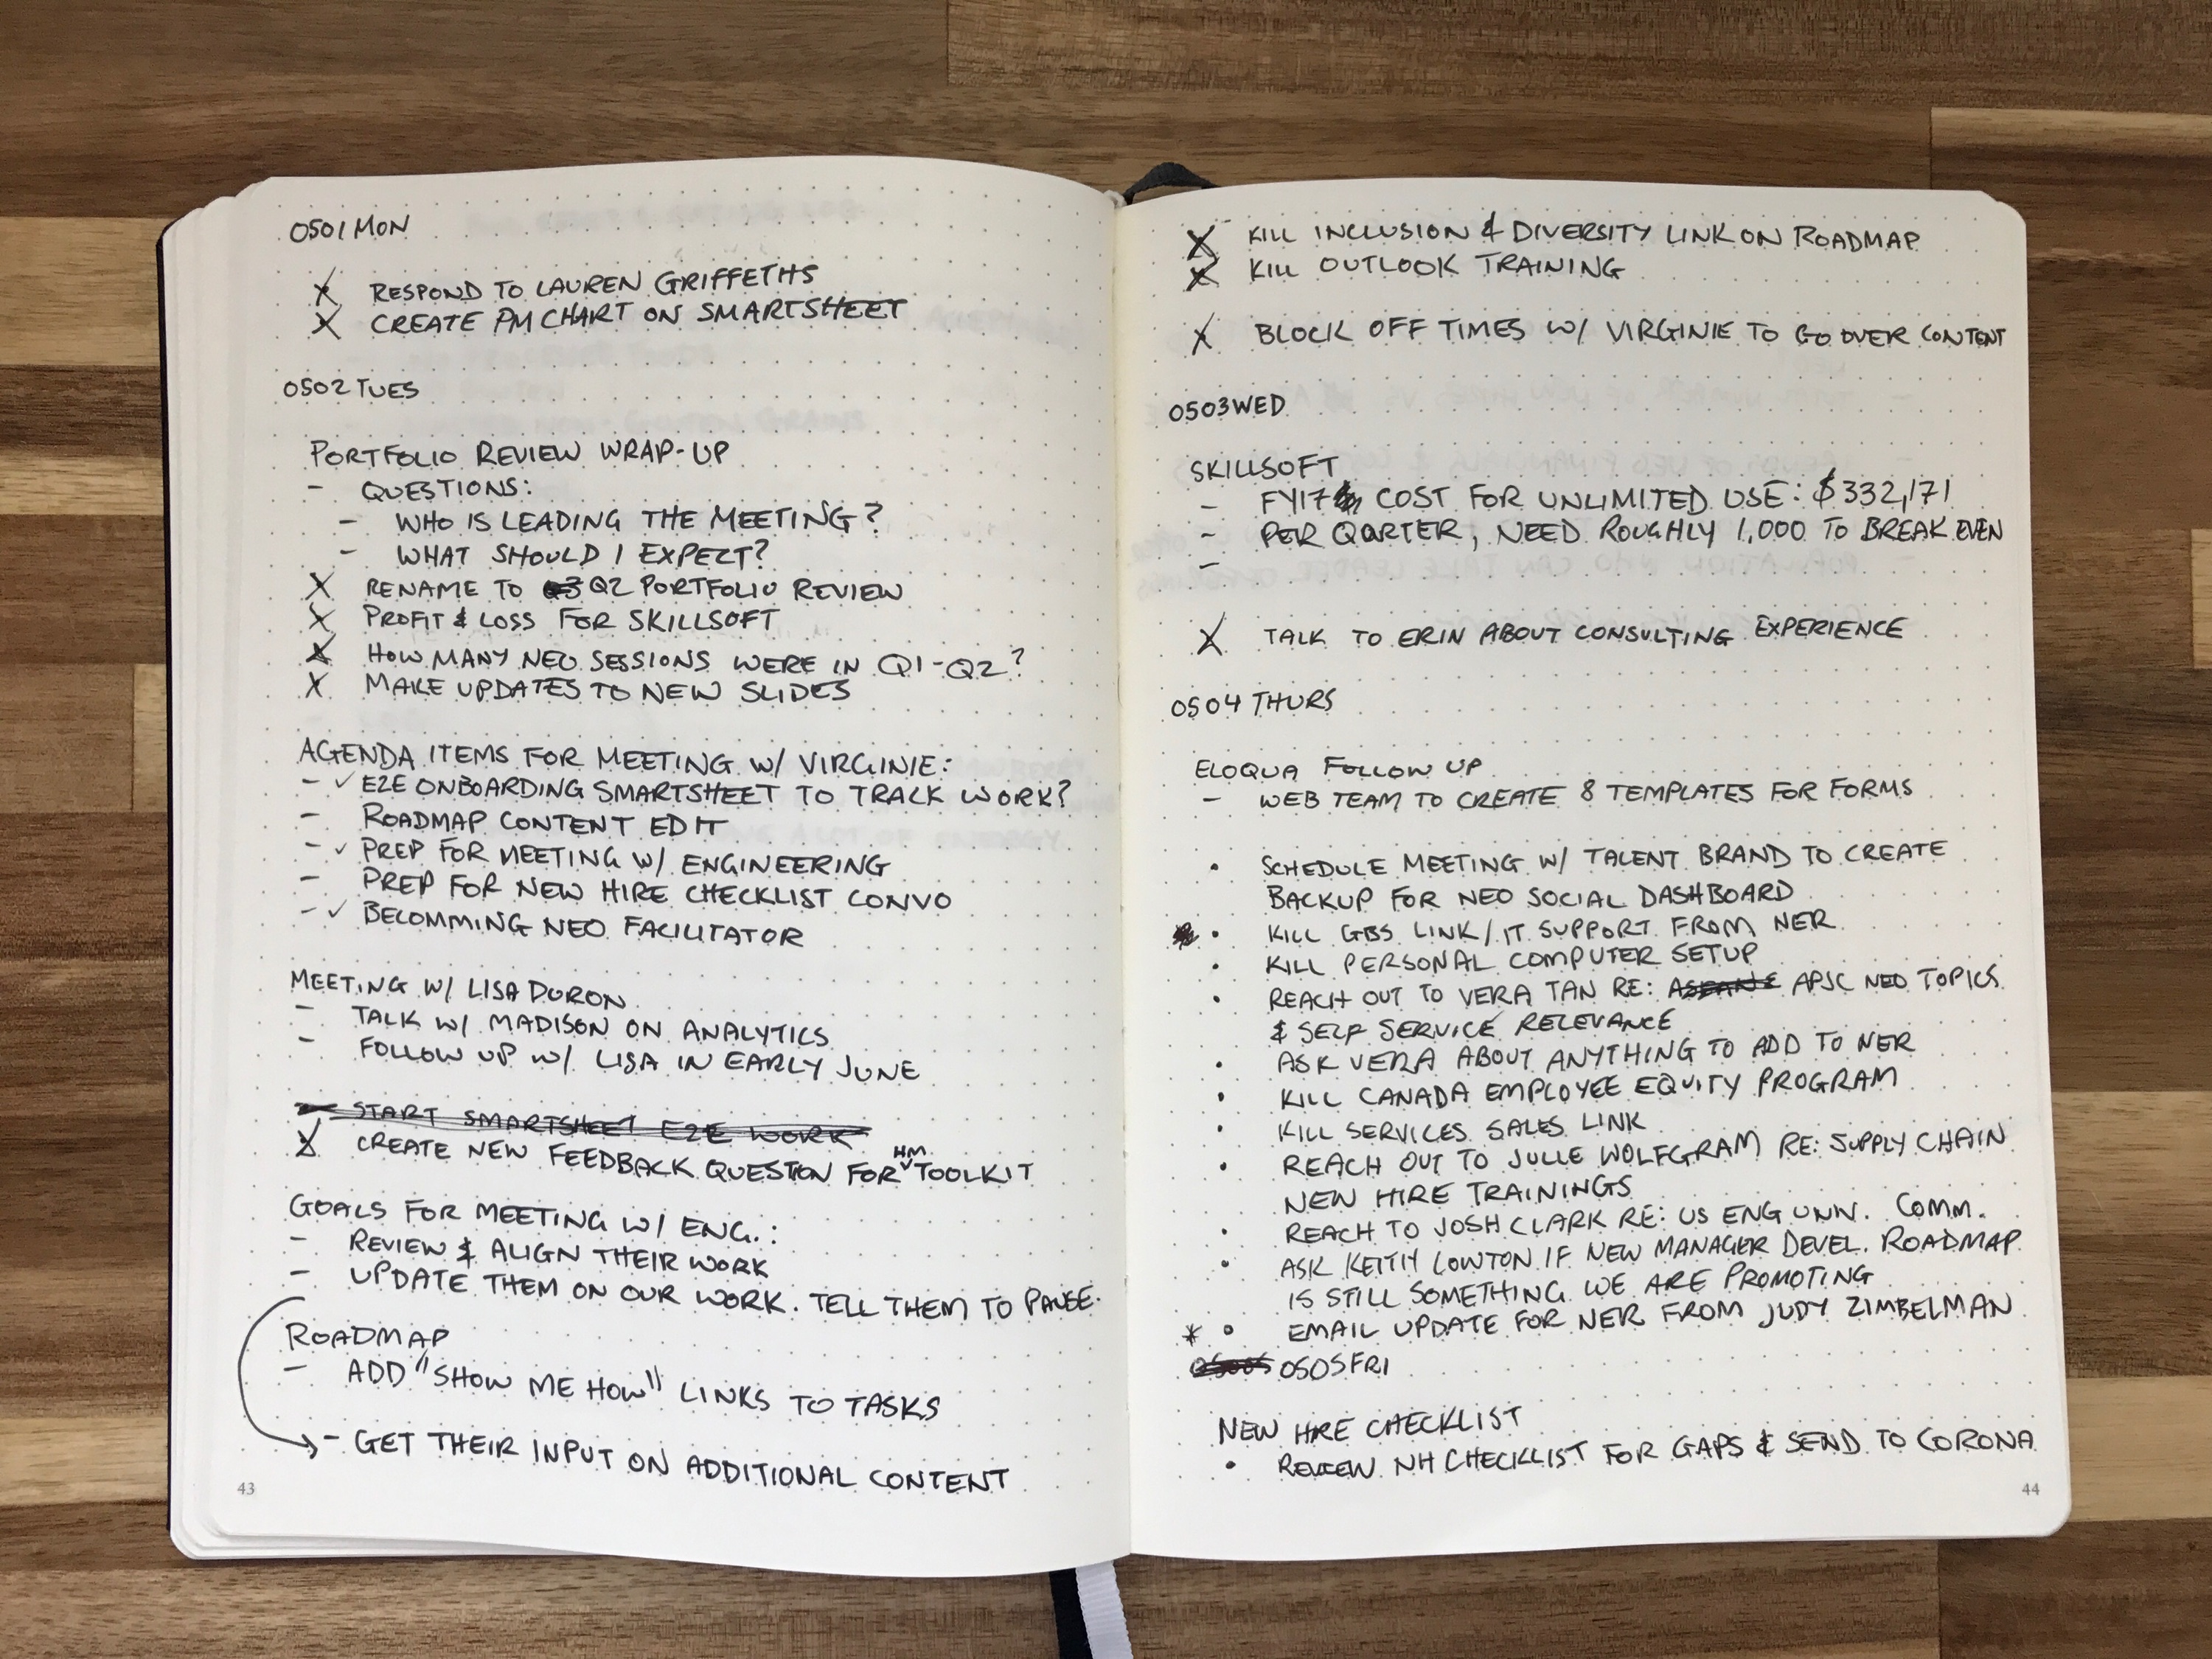 0501 MON
X RESPOND TO LAUREN GRIFFETHS
X CREATE PM CHART ON SMARTSHEET
0502 TUES
PORTFOLIO REVIEW WRAP-UP
- QUESTIONS:
- WHO IS LEADING THE MEETING?
- WHAT SHOULD I EXPECT?
X RENAME TO Q3 Q2 PORTFOLIO REVIEW
X PROFIT & LOSS FOR SKILLSOFT
X HOW MANY NEO SESSIONS WERE IN Q1-Q2?
X MAKE UPDATES TO NEW SLIDES
AGENDA ITEMS FOR MEETING W/ VIRGINIE:
- ✓ E2E ONBOARDING SMARTSHEET TO TRACK WORK?
- ROADMAP CONTENT EDIT
- ✓ PREP FOR MEETING W/ ENGINEERING
- PREP FOR NEW HIRE CHECKLIST CONVO
- ✓ BECOMMING NEO FACILITATOR
MEETING W/ LISA DURON
- TALK W/ MADISON ON ANALYTICS
- FOLLOW UP W/ LISA IN EARLY JUNE
- START SMARTSHEET E2E WORK
X CREATE NEW FEEDBACK QUESTION FOR HM TOOLKIT
GOALS FOR MEETING W/ ENG.:
- REVIEW & ALIGN THEIR WORK
- UPDATE THEM ON OUR WORK. TELL THEM TO PAUSE.
ROADMAP
- ADD "SHOW ME HOW" LINKS TO TASKS
→ - GET THEIR INPUT ON ADDITIONAL CONTENT
43
X KILL INCLUSION & DIVERSITY LINK ON ROADMAP
X KILL OUTLOOK TRAINING
X BLOCK OFF TIMES W/ VIRGINIE TO GO OVER CONTENT
0503 WED
SKILLSOFT
- FY17 COST FOR UNLIMITED USE: $332,171
- PER QARTER, NEED ROUGHLY 1,000 TO BREAK EVEN
-
X TALK TO ERIN ABOUT CONSULTING EXPERIENCE
0504 THURS
ELOQUA FOLLOW UP
- WEB TEAM TO CREATE 8 TEMPLATES FOR FORMS
• SCHEDULE MEETING W/ TALENT BRAND TO CREATE
BACKUP FOR NEO SOCIAL DASHBOARD
• KILL GBS LINK/IT SUPPORT FROM NER
• KILL PERSONAL COMPUTER SETUP
• REACH OUT TO VERA TAN RE: APJC NEO TOPICS
& SELF SERVICE RELEVANCE
• ASK VERA ABOUT ANYTHING TO ADD TO NER
• KILL CANADA EMPLOYEE EQUITY PROGRAM
• KILL SERVICES SALES LINK
• REACH OUT TO JULIE WOLFGRAM RE: SUPPLY CHAIN
NEW HIRE TRAININGS
• REACH TO JOSH CLARK RE: US ENG UNIV. COMM.
• ASK KEITH LOWTON IF NEW MANAGER DEVEL. ROADMAP
IS STILL SOMETHING WE ARE PROMOTING
* • EMAIL UPDATE FOR NER FROM JUDY ZIMBELMAN
0505 FRI
NEW HIRE CHECKLIST
• REVIEW NH CHECKLIST FOR GAPS & SEND TO CORONA
44